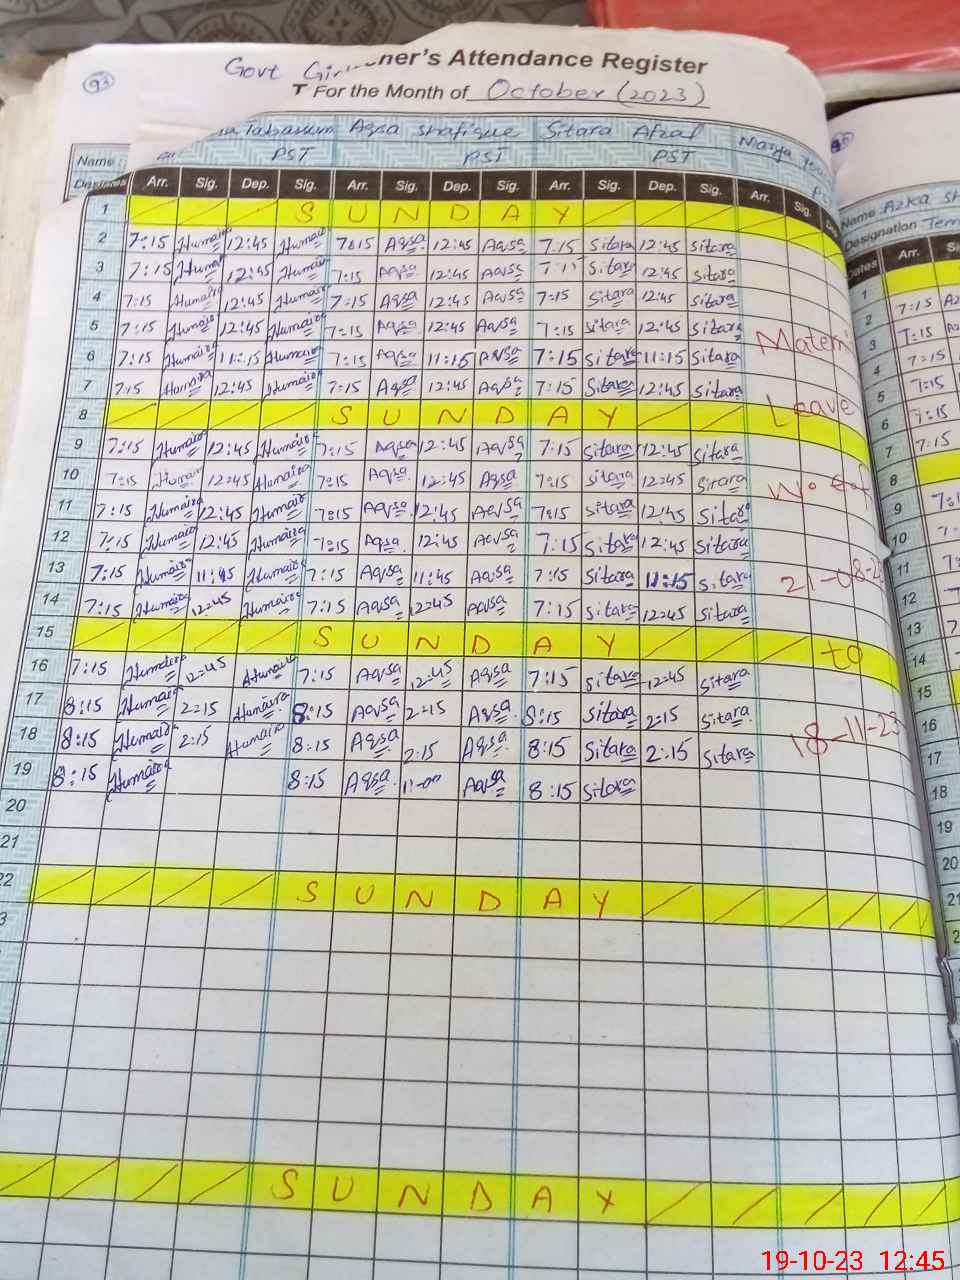 93
Govt Gir
ner's Attendance Register
T For the Month of October (2023)
Name: Tabassum Aqsa Shafique Sitara Afzal Marya
PST PST PST
Arr. Sig. Dep. Sig. Arr. Sig. Dep. Sig. Arr. Sig. Dep. Sig. Arr. Sig.
1 S U N D A Y
2 7:15 Humaira 12:45 Humaira 7:15 Aqsa 12:45 Aqsa 7:15 Sitara 12:45 Sitara
3 7:15 Humaira 12:45 Humaira 7:15 Aqsa 12:45 Aqsa 7:15 Sitara 12:45 Sitara
4 7:15 Humaira 12:45 Humaira 7:15 Aqsa 12:45 Aqsa 7:15 Sitara 12:45 Sitara
5 7:15 Humaira 12:45 Humaira 7:15 Aqsa 12:45 Aqsa 7:15 Sitara 12:45 Sitara
6 7:15 Humaira 11:15 Humaira 7:15 Aqsa 11:15 Aqsa 7:15 Sitara 11:15 Sitara
7 7:15 Humaira 12:45 Humaira 7:15 Aqsa 12:45 Aqsa 7:15 Sitara 12:45 Sitara
8 S U N D A Y
9 7:15 Humaira 12:45 Humaira 7:15 Aqsa 12:45 Aqsa 7:15 Sitara 12:45 Sitara
10 7:15 Humaira 12:45 Humaira 7:15 Aqsa 12:45 Aqsa 7:15 Sitara 12:45 Sitara
11 7:15 Humaira 12:45 Humaira 7:15 Aqsa 12:45 Aqsa 7:15 Sitara 12:45 Sitara
12 7:15 Humaira 12:45 Humaira 7:15 Aqsa 12:45 Aqsa 7:15 Sitara 12:45 Sitara
13 7:15 Humaira 11:45 Humaira 7:15 Aqsa 11:45 Aqsa 7:15 Sitara 11:15 Sitara
14 7:15 Humaira 12:45 Humaira 7:15 Aqsa 12:45 Aqsa 7:15 Sitara 12:45 Sitara
15 S U N D A Y
16 7:15 Humaira 12:45 Humaira 7:15 Aqsa 12:45 Aqsa 7:15 Sitara 12:45 Sitara
17 8:15 Humaira 2:15 Humaira 8:15 Aqsa 2:15 Aqsa 8:15 Sitara 2:15 Sitara
18 8:15 Humaira 2:15 Humaira 8:15 Aqsa 2:15 Aqsa 8:15 Sitara 2:15 Sitara
19 8:15 Humaira 8:15 Aqsa 11:00 Aqsa 8:15 Sitara
20
21
22 S U N D A Y
S U N D A Y
Materni
Leave
21-08-2
to
18-11-23
Name Azka Sh
Designation Tem
Dates Arr.
1
2 7:15
3 7:15
4 7:15
5 7:15
6 7:15
7 7:15
8
9
10
11
12
13
14
15
16
17
18
19
20
21
19-10-23 12:45